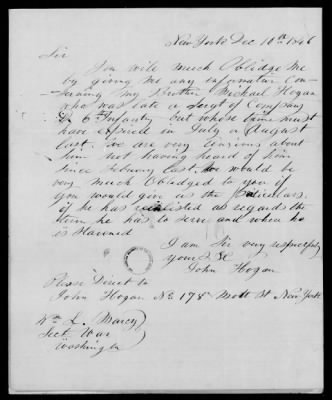 New York Dec 10th 1846
Sir
You will much Oblidge Me
by giving Me any information Con-
cerning My Brother Michael Hogan
who was late a Sergt of Company
6th Infantry but whose time must
have expired in July or August
last. We are very anxious about
him not having heard of him
since Febuary last. We would be
very much Obliedged to you if
you would give us the Particulars.
if he has enlisted as regards the
time he has to serve and where he
is Stationed
I am Sir very respectfuly
yours &c
John Hogan
Please Direct to
John Hogan No 178 Mott St New York
Wm L. Marcy
Sect War
Washington